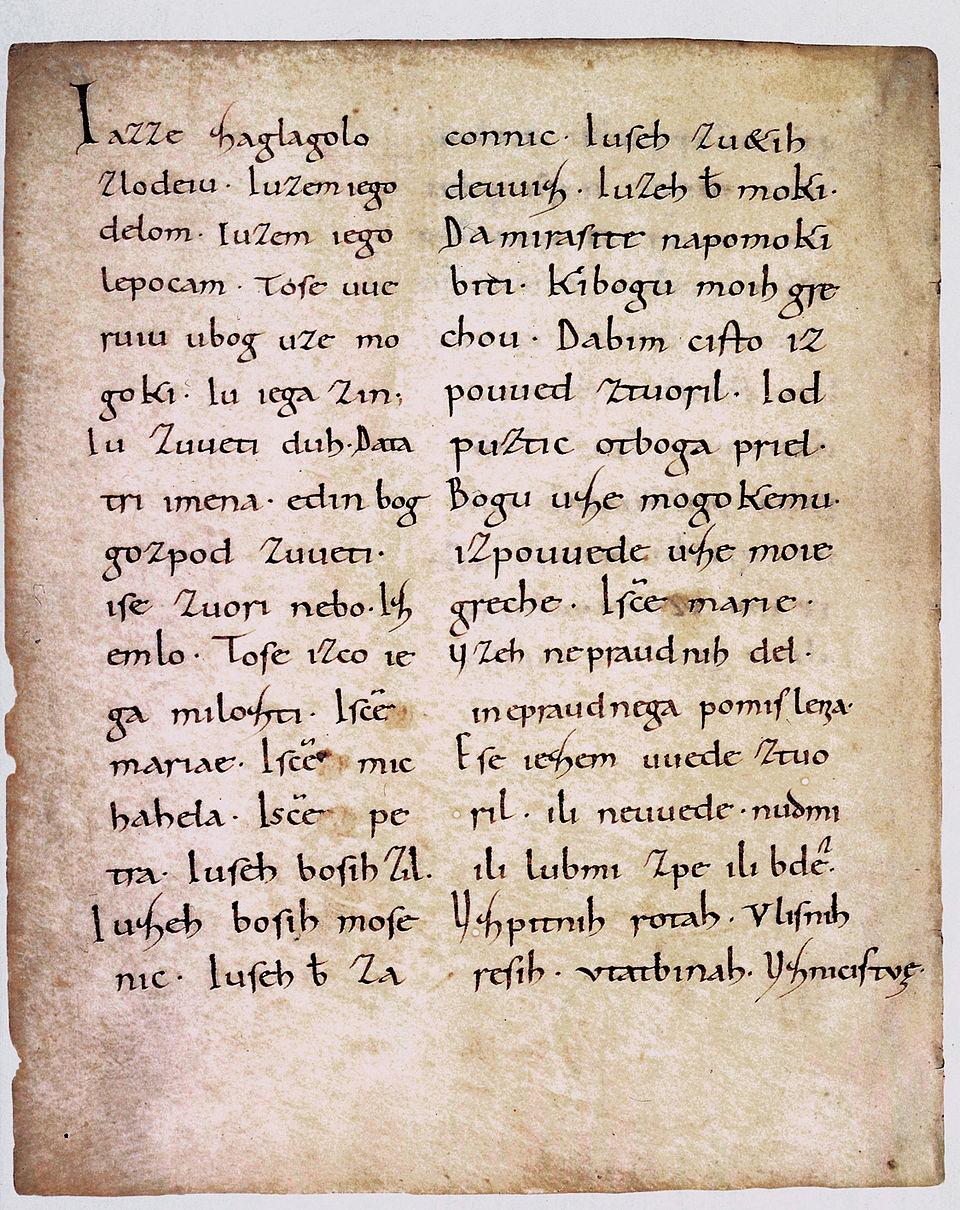 Iazze zaglagolo
zlodeiu. Iuzem iego
delom. Iuzem iego
lepocam. Tose uue
ruiu ubog uze mo
goki. Iu iega zin;
Iu zuueti duh. Data
tri imena. edin bog
gozpod zuueti.
ise zuori nebo. Iz
emlo. Tose izco ie
ga milozti. Isc̄e
mariae. Isc̄e mic
hahela. Isc̄e pe
tra. Iuseh bosih zil.
Iuzeh bosih mose
nic. Iuseh b̄ za
connic. Iuseh zu&ih
deuuiz. Iuzeh b̄ moki.
Da mirasite napomoki
biti. Kibogu moih gre
chou. Dabim cisto iz
pouued ztuoril. Iod
puztic otboga priel.
Bogu uze mogokemu.
izpouuede uze moie
greche. Isc̄e marie.
Vzeh nepraudnih del.
inepraudnega pomislena.
Ese iezem uuede ztuo
ril. ili neuuede. nudmi
ili lubmi zpe ili bde.
Vzpitnih rotah. Vlisnih
resih. vtatbinah. Vzmicistve.